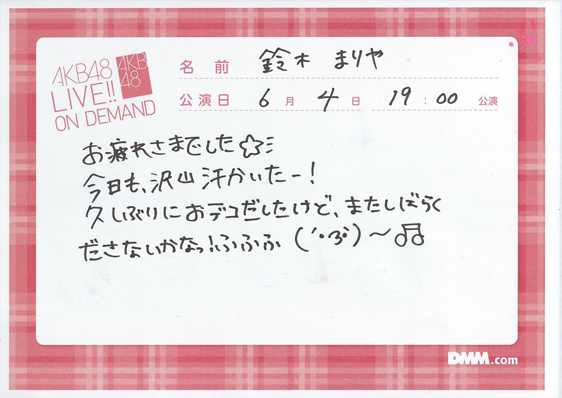 AKB48
LIVE!!
ON DEMAND
AKB
48
名前 鈴木 まりや
公演日 6月 4日 19:00 公演
お疲れさまでした☆ミ
今日も、沢山汗かいたー!
久しぶりにおデコだしたけど、またしばらく
ださないかなっ!ふふふ (´・ω・`)〜♫
DMM.com